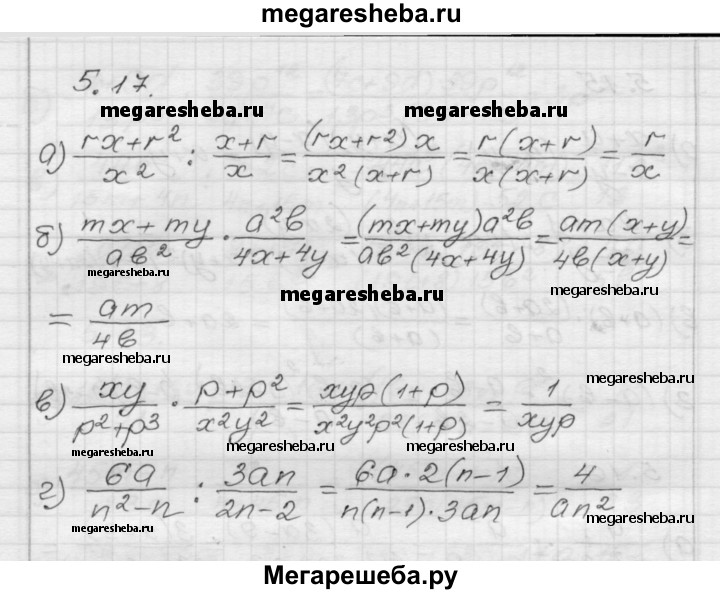 megaresheba.ru
5.17.
megaresheba.ru megaresheba.ru
а) (rx+r²)/x² : (x+r)/x = ((rx+r2)x)/(x²(x+r)) = (r(x+r))/(x(x+r)) = r/x
б) (mx+my)/(aв²) · (a²в)/(4x+4y) = ((mx+my)a²в)/(aв²(4x+4y)) = (am(x+y))/(4в(x+y)) =
megaresheba.ru megaresheba.ru
megaresheba.ru
= (am)/(4в)
megaresheba.ru
megaresheba.ru
в) (xy)/(p²+p³) · (p+p²)/(x²y²) = (xyp(1+p))/(x²y²p²(1+p)) = 1/(xyp)
megaresheba.ru megaresheba.ru megaresheba.ru
г) (6a)/(n²-n) : (3an)/(2n-2) = (6a·2(n-1))/(n(n-1)·3an) = 4/(an²)
megaresheba.ru megaresheba.ru
Мегарешеба.ру